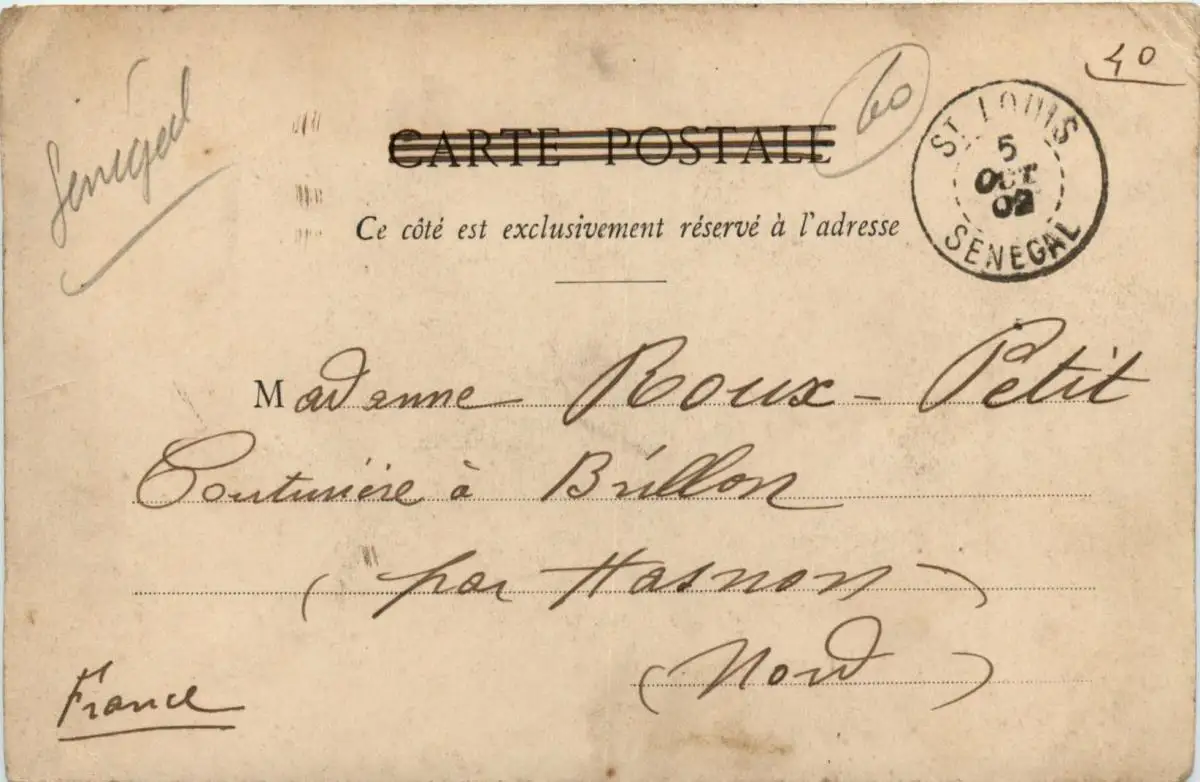 Sénégal
40
60
CARTE POSTALE
Ce côté est exclusivement réservé à l'adresse
ST. LOUIS
5
OCT
02
SENEGAL
Madame Roux-Petit
Couturière à Brillon
(par Hasnon)
(Nord)
France